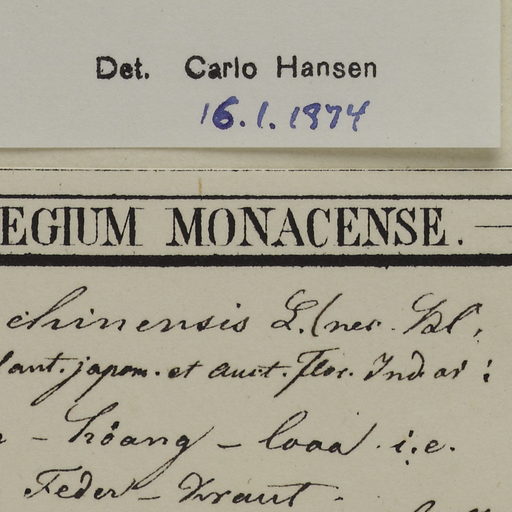 Det. Carlo Hansen
16.1.1974
EGIUM MONACENSE.
chinensis L. (nec. Bl.
lant. japon. et auct. Flor. Ind. or:
- hôang - looa i.e.
Feder - Kraut.